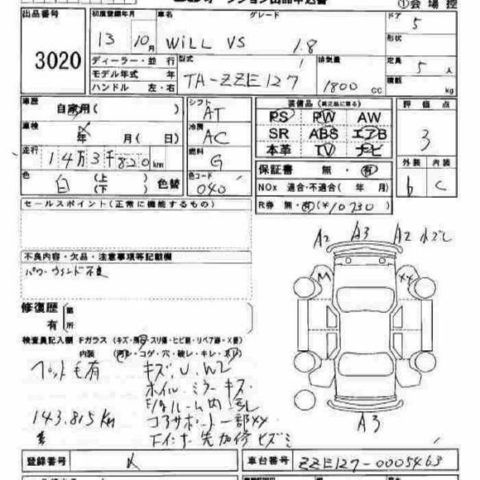 オークション出品申込書
①会場控
出品番号
3020
初度登録年月
13年 10月
車名
WiLL VS
グレード
1.8
ドア
5
形状
ディーラー・並行
モデル年式 年
ハンドル 左・右
型式
TA-ZZE127
排気量
1800 cc
定員
5人
積載
kg
車歴
自家用( )
車検
年 月(日)
走行
14万3千820km
色
白
(上)
(下)
色替
シフト
AT
冷房
AC
燃料
G
色コード
040
装備品(純正品に限る)
PS PW AW
SR ABS エアB
本革 TV ナビ
保証書 無・有
NOx 適合・不適合( 年 月)
R券 無・有(¥10730)
評価点
3
外装 内装
b C
セールスポイント(正常に機能するもの)
不良内容・欠品・注意事項等記載欄
パワーウインド不良
修復歴
無
有
所
検査員記入欄 Fガラス(キズ・飛・スリ傷・ヒビ割・リペア跡・X要)
内装
ペット毛有
キズ,U,W2
ホイル・ミラーキズ
コアサポート一部XX
143,815km
A2 A3 A2 水ズレ
XX
A3
登録番号
車台番号
ZZE127-0005463